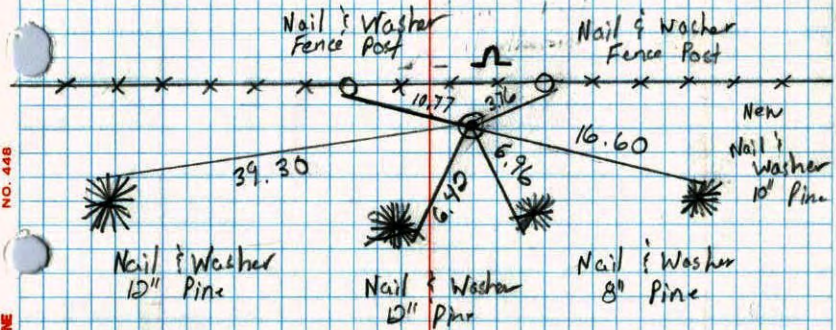 Nail & Washer
Fence Post
Nail & Washer
Fence Post
10.77
3.76
New
Nail &
Washer
10" Pine
16.60
39.30
6.42
6.96
NO. 448
Nail & Washer
12" Pine
Nail & Washer
12" Pine
Nail & Washer
8" Pine